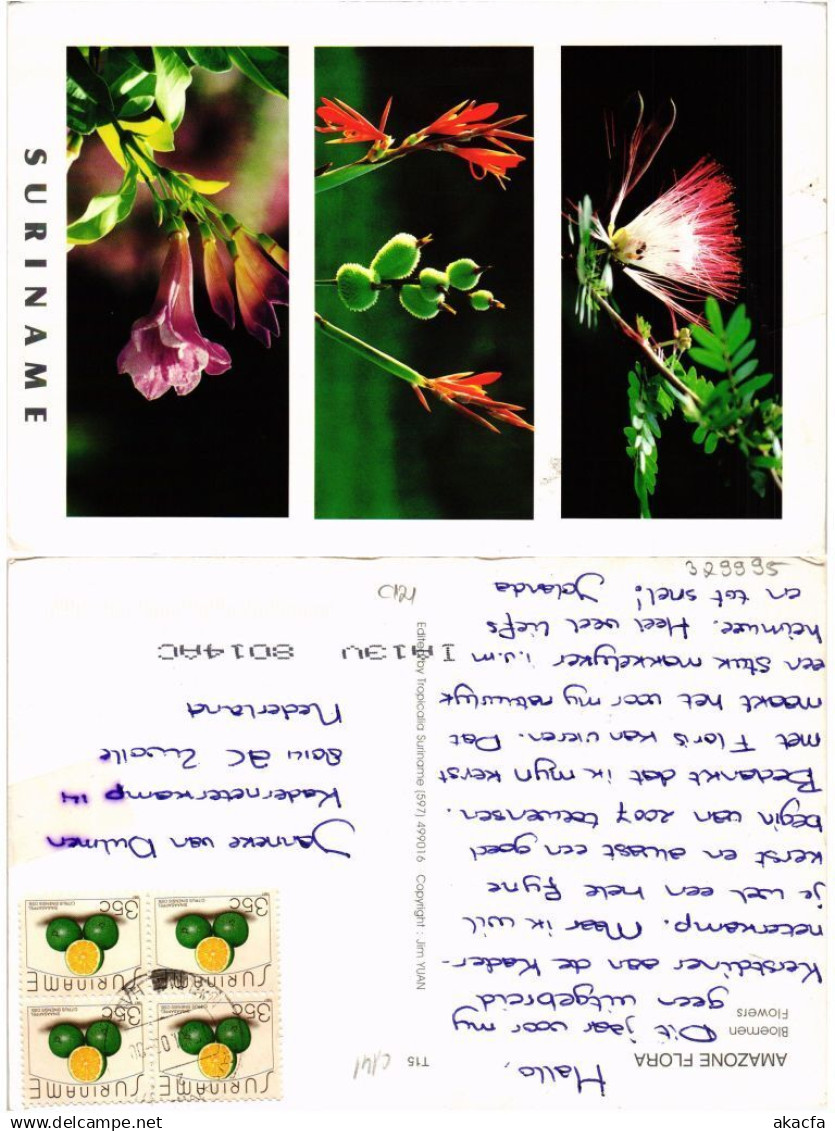 SURINAME
329995
AMAZONE FLORA
Bloemen
Flowers
T15
Hallo,
Dit jaar voor my
geen uitgebreid
Kerstdiner aan de Kader-
neterkamp. Maar ik wil
je wel een hele fyne
kerst en alvast een goed
begin van 2007 toewensen.
Bedankt dat ik mijn kerst
met Floris kan vieren. Dat
maakt het voor my natuurlyk
een stuk makkelyker i.v.m
heimwee. Heel veel liefs
en tot snel! Jolanda
Edited by Tropicalia Suriname (597) 499016 Copyright : Jim YUAN
SURINAME
35c
SINAASAPPEL
CITRUS SINENSIS OSB
SURINAME
35c
SINAASAPPEL
CITRUS SINENSIS OSB
SURINAME
35c
SURINAME
35c
Janneke van Dulmen
Kaderneterkamp 14
8014 AC Zwolle
Nederland
8014AC
www.akacfa.com